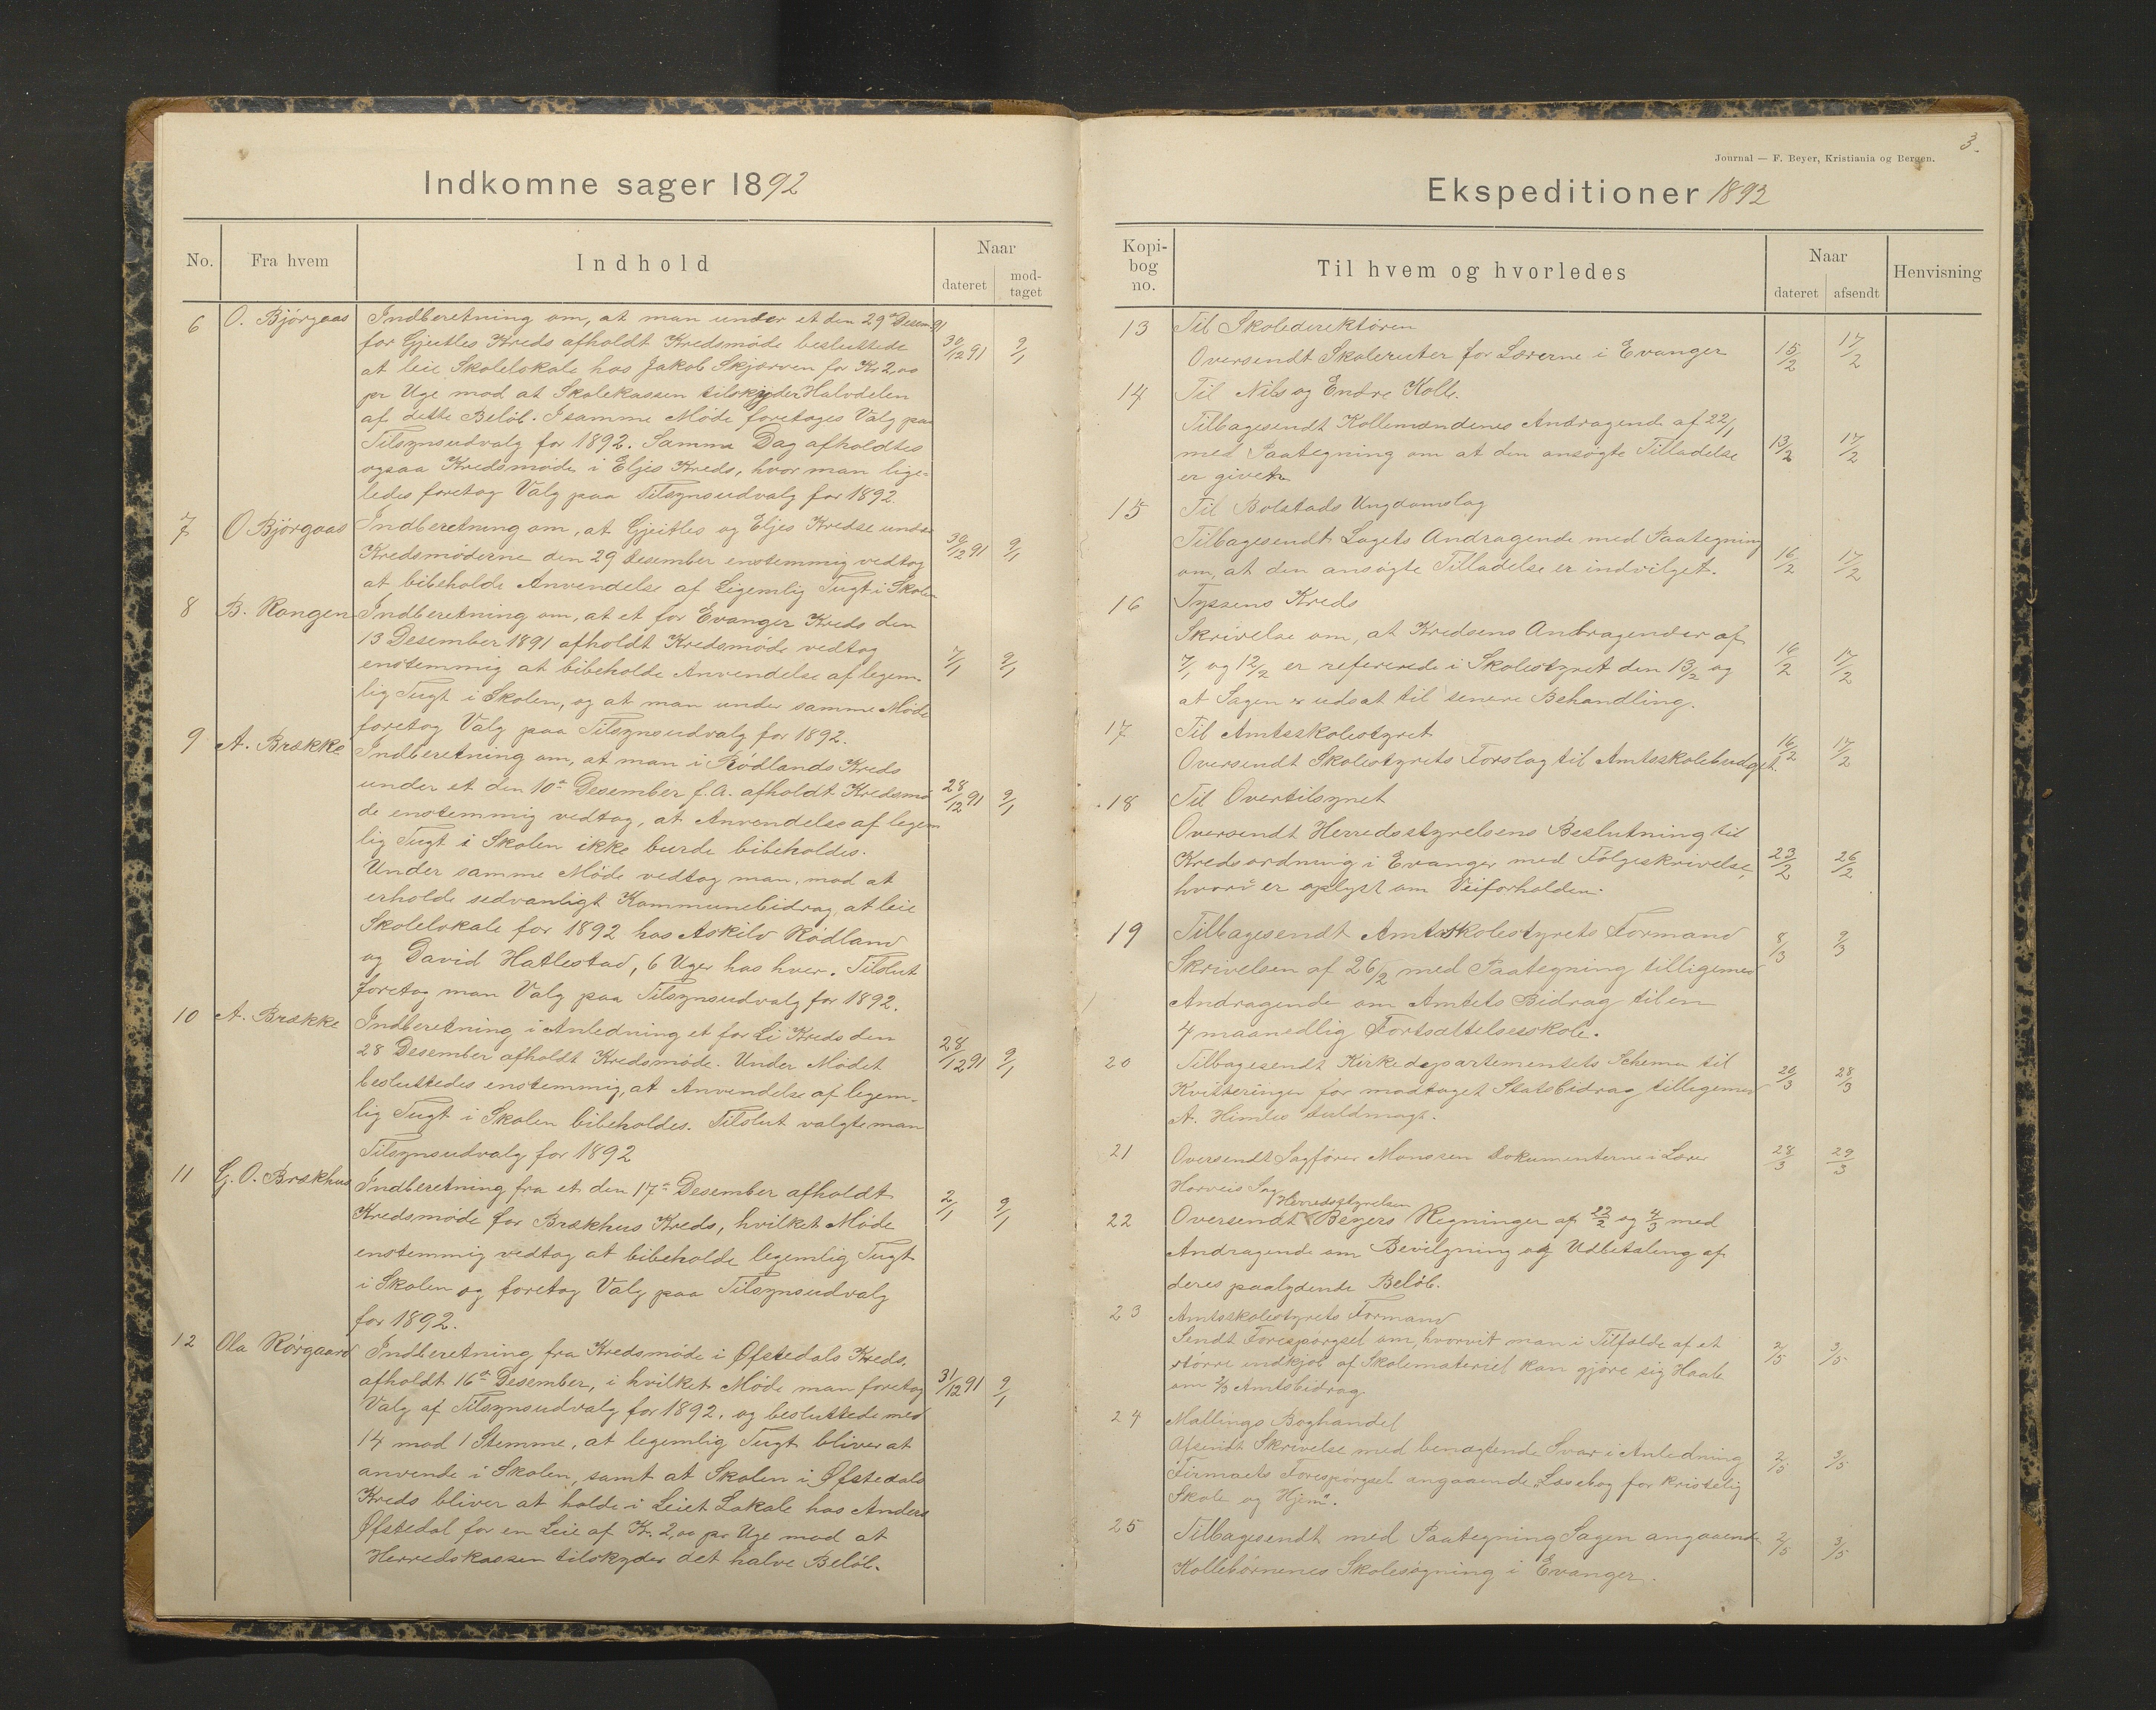 Indkomne sager 1892
No.
Fra hvem
Indhold
Naar
dateret
mod-
taget
6 O. Bjørgaas Indberetning om, at man under et den 29de Desem. 91
for Gjeitles Kreds afholdt Kredsmøde besluttede 30/12 91 9/1
at leie Skolelokale hos Jakob Skjerven for Kr 2,00
pr Uge mod at Skolekassen tilskyder Halvdelen
af dette Beløb. I samme Møde foretoges Valg paa
Tilsynsudvalg for 1892. Samme Dag afholdtes
ogsaa Kredsmøde i Eljes Kreds, hvor man lige=
ledes foretog Valg paa Tilsynsudvalg for 1892.
7 O Bjørgaas Indberetning om, at Gjeitles og Eljes Kredse under
Kredsmøderne den 29 Desember enstemmig vedtog 30/12 91 9/1
at bibeholde Anvendelse af Legemlig Tugt i Skolen
8 B. Rongen Indberetning om, at et for Evanger Kreds den
13 Desember 1891 afholdt Kredsmøde vedtog
enstemmig at bibeholde Anvendelse af legem- 7/1 9/1
lig Tugt i Skolen, og at man under samme Møde
foretog Valg paa Tilsynsudvalg for 1892.
9 A. Brække Indberetning om, at man i Rødlands Kreds
under et den 10de Desember f.A. afholdt Kredsmø 28/12 91 9/1
de enstemmig vedtog, at Anvendelse af legem
lig Tugt i Skolen ikke burde bibeholdes.
Under samme Møde vedtog man, mod at
erholde sedvanligt Kommunebidrag, at leie
Skolelokale for 1892 hos Askild Rødland
og David Hatlestad, 6 Uger hos hver. Tilslut
foretog man Valg paa Tilsynsudvalg for 1892.
10 A. Brække Indberetning i Anledning et for Li Kreds den
28 Desember afholdt Kredsmøde. Under Mødet 28/12 91 9/1
besluttedes enstemmig, at Anvendelse af legem-
lig Tugt i Skolen bibeholdes. Tilslut valgte man
Tilsynsudvalg for 1892
11 G. O. Brækhus Indberetning fra et den 17de Desember afholdt 2/1 9/1
Kredsmøde for Brækhus Kreds, hvilket Møde
enstemmig vedtog at bibeholde legemlig Tugt
i Skolen og foretog Valg paa Tilsynsudvalg
for 1892.
12 Ola Rørgaard Indberetning fra Kredsmøde i Øfstedals Kreds,
afholdt 16de Desember, i hvilket Møde man foretog 31/12 91 9/1
Valg af Tilsynsudvalg for 1892, og besluttede med
14 mod 1 Stemme, at legemlig Tugt bliver at
anvende i Skolen, samt at Skolen i Øfstedals
Kreds bliver at holde i Leiet Lokale hos Anders
Øfstedal for en Leie af Kr. 2,00 pr Uge mod at
Herredskassen tilskyder det halve Beløb.
3.
Journal — F. Beyer, Kristiania og Bergen.
Ekspeditioner 1892
Kopi-
bog
no.
Til hvem og hvorledes
Naar
dateret
afsendt
Henvisning
13 Til Skoledirektøren
Oversendt Skoleruter for Lærerne i Evanger 15/2 17/2
14 Til Nils og Endre Kolle.
Tilbagesendt Kollemændenes Andragende af 22/1
med Paategning om at den ansøgte Tilladelse 13/2 17/2
er given
15 Til Bolstads Ungdomslag
Tilbagesendt Lagets Andragende med Paategning
om, at den ansøgte Tilladelse er indvilget. 16/2 17/2
16 Tyssens Kreds
Skrivelse om, at Kredsens Andragender af
7/1 og 12/2 er refererede i Skolestyret den 13/2 og 16/2 17/2
at Sagen er udsat til senere Behandling.
17 Til Amtsskolestyret
Oversendt Skolestyrets Forslag til Amtsskolebudget. 16/2 17/2
18 Til Overtilsynet
Oversendt Herredsstyrelsens Beslutning til
Kredsordning i Evanger med Følgeskrivelse, 23/2 26/2
hvori er oplyst om Veiforholden.
19 Tilbagesendt Amtsskolestyrets Formand 8/3 9/3
Skrivelsen af 26/2 med Paategning tilligemed
Andragende om Amtets Bidrag til en
4 maanedlig Fortsættelsesskole.
20 Tilbagesendt Kirkedepartementets Schema til
Kvitteringer for modtaget Statsbidrag tilligemed 20/3 28/3
A. Himles Fuldmagt.
21 Oversendt Sagfører Monssen Dokumenterne i Lærer 28/3 29/3
Horveis Sag
Herredsstyrelsen
22 Oversendt Beyers Regninger af 22/2 og 4/3 med
Andragende om Bevilgning og Udbetaling af
deres paalydende Beløb.
23 Amtsskolestyrets Formand
Sendt Forespørgsel om, hvorvit man i Tilfælde af et 2/5 3/5
større indkjøb af Skolemateriel kan gjøre sig Haab
om 2/3 Amtsbidrag.
24 Mallings Boghandel
Afsendt Skrivelse med benægtende Svar i Anledning 2/5 3/5
Firmaets Forespørgsel angaaende "Læsebog for kristelig
Skole og Hjem".
25 Tilbagesendt med Paategning Sagen angaaende 2/5 3/5
Kollebørnenes Skolesøgning i Evanger.